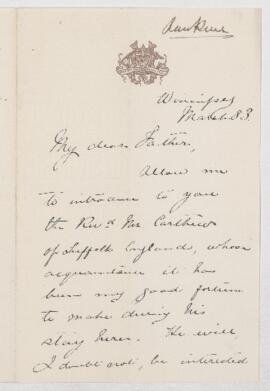 Winnipeg
March 83.
My dear Father,
Allow me
to introduce to you
the Revd Mr Carthew
of Suffolk England, whose
acquaintance it has
been my good fortune
to make during his
stay here. He will
I doubt not, be interested